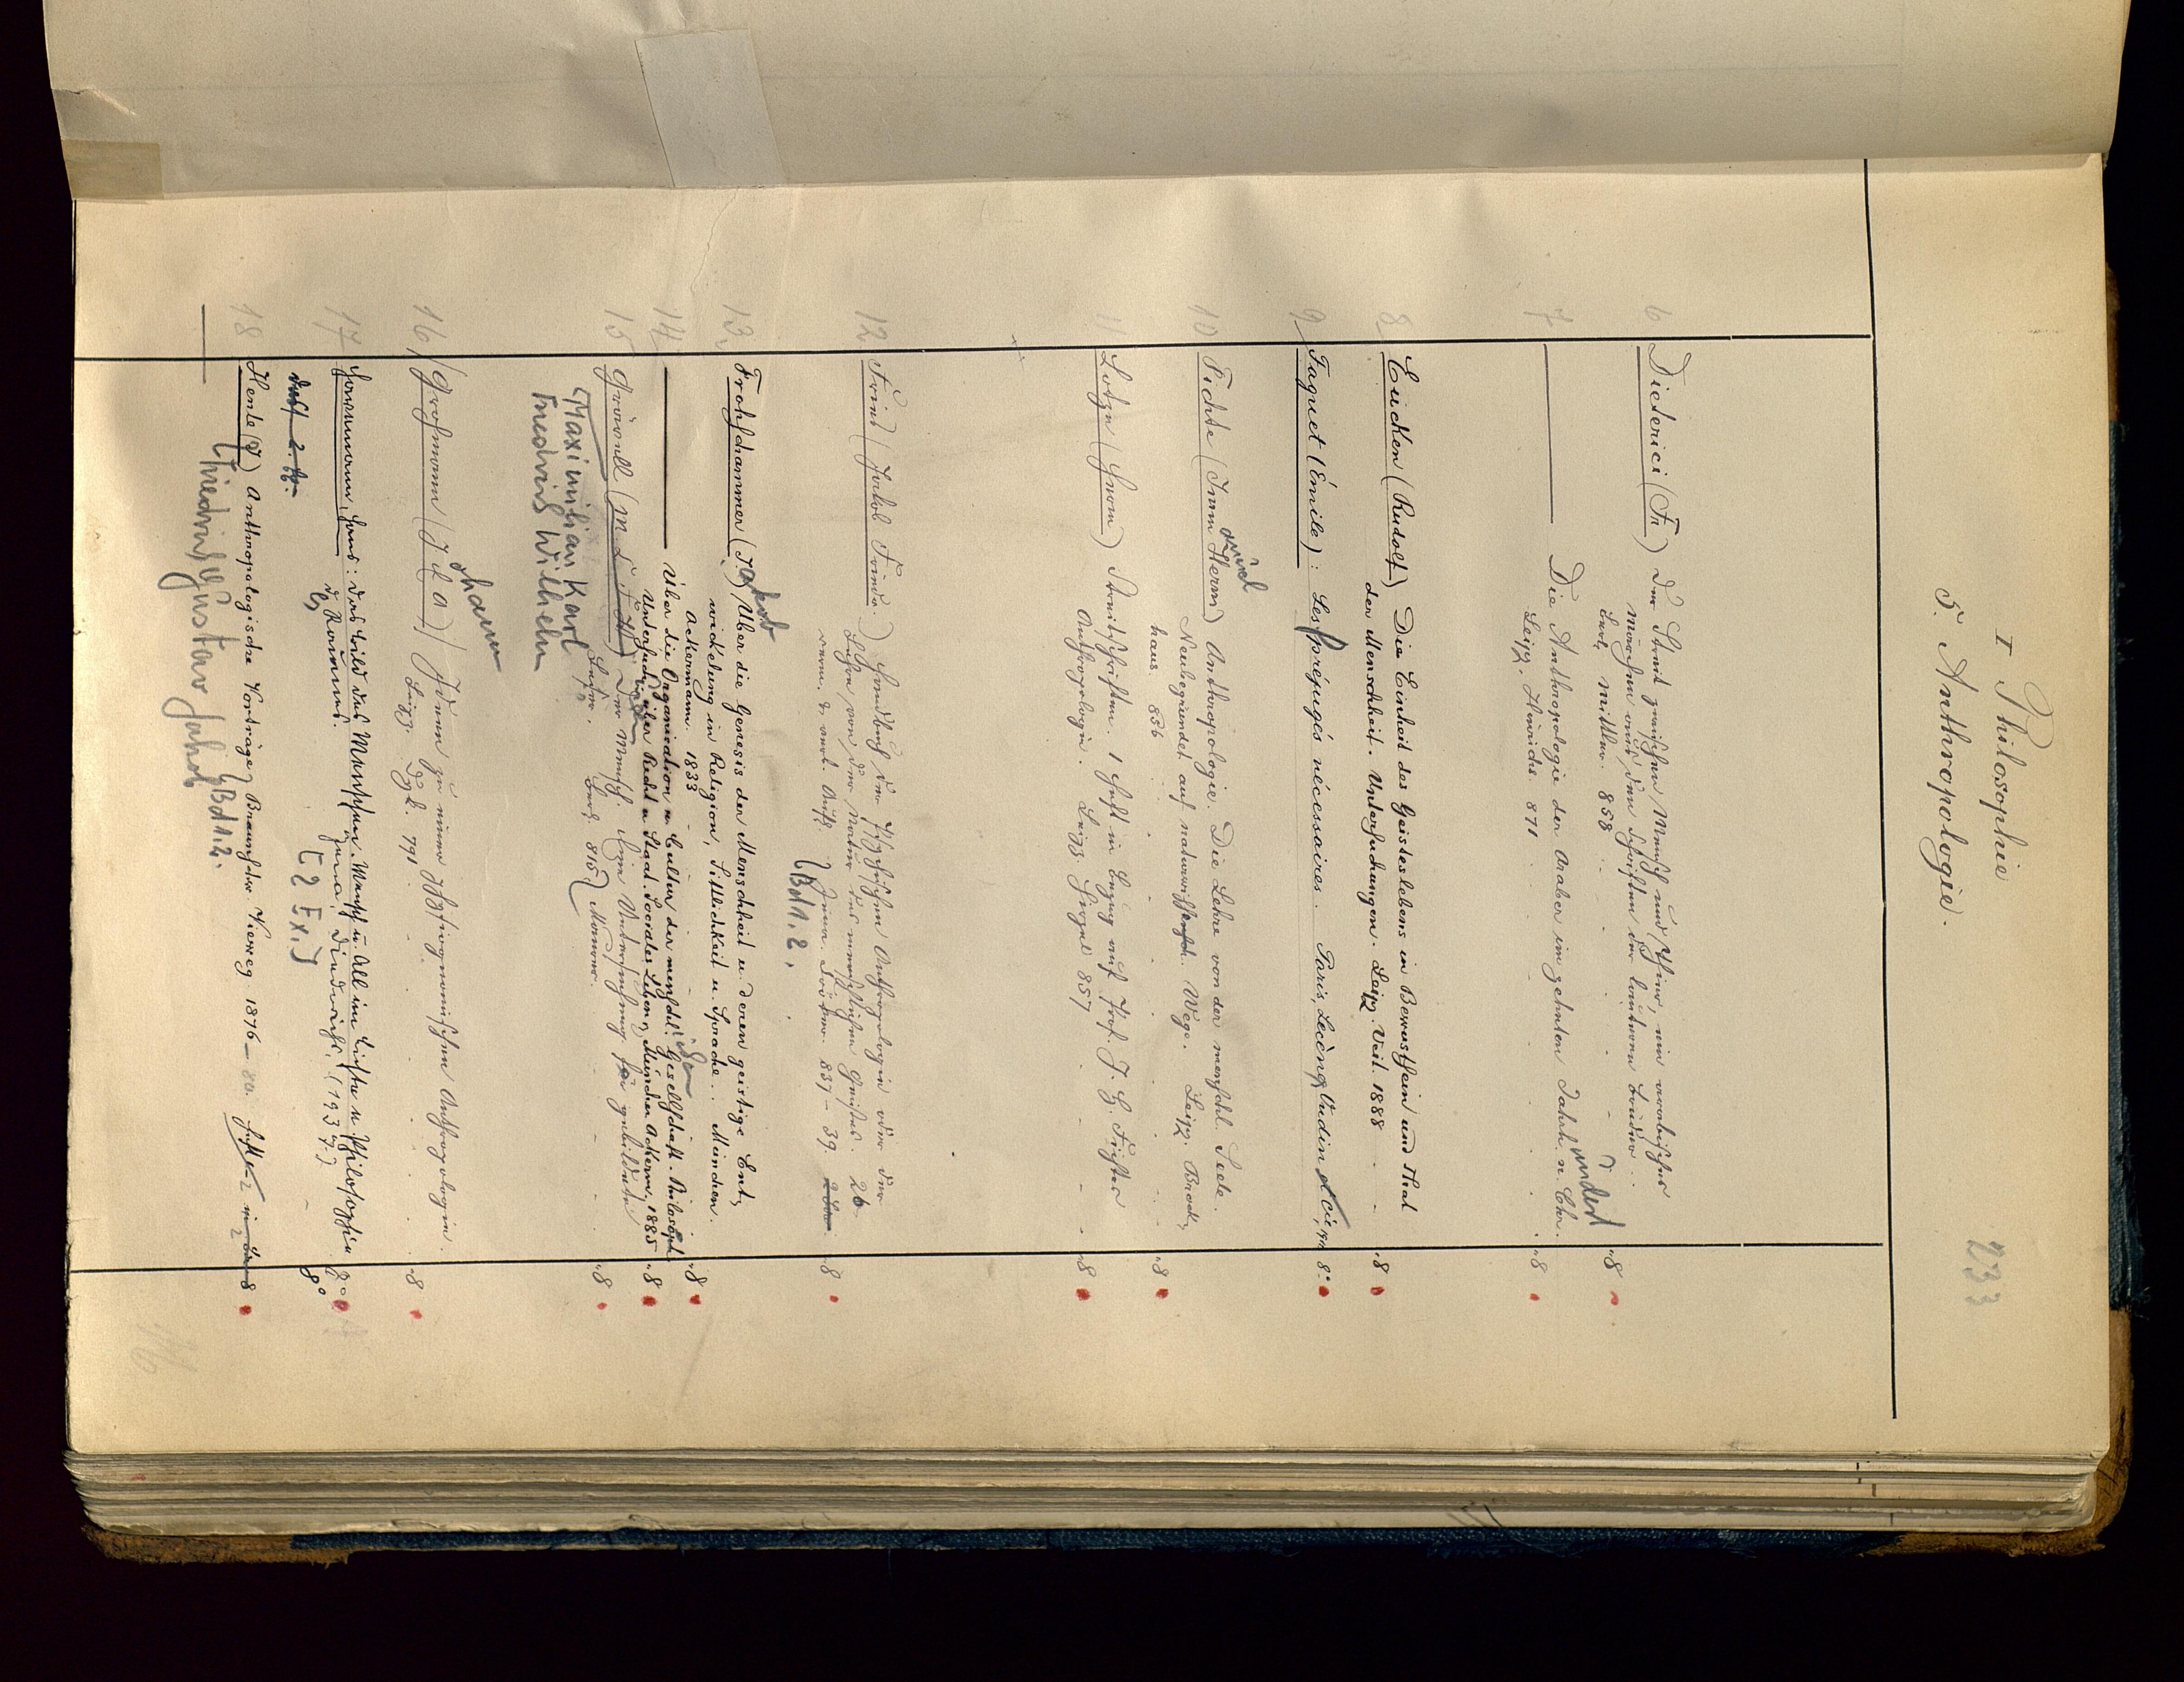 I Philosophie
5. Anthropologie.
233
6 Dieterici (Fr) Der Streit zwischen Mensch und Thier, ein arabisches
Märchen aus den Schriften der lauteren Brüder.
Berl. Mittler. 858 8
7 Die Anthropologie der Araber im zehnten Jahrhundert n. Chr.
Leipz. Hinrichs 871 8
8 Eucken (Rudolf) Die Einheit des Geisteslebens in Bewusstsein und That
der Menschheit. Untersuchungen. Leipz. Veit. 1888 8
9 Faguet (Émile): Les préjugés nécessaires. Paris, Lecène, Oudin et Cie, 8°
10 Fichte (Imm. Herm) Anthropologie. Die Lehre von der menschl. Seele.
anuel
Neubegründet auf naturwissensch. Wege. Leipz. Brock-
haus. 856 8
11 Lotze (Herm) Streitschriften. 1 Heft in Bezug auf Prof. J. H. Fichtes
Anthropologie. Leipz. Hirzel 857 8
12 Fries (Jakob Friedr.) Handbuch der psychischen Anthropologie oder der
Lehre von der Natur des menschlichen Geistes. 2b
verm. & verb. Aufl. Jena. Cröker. 837-39. 8
(Bd 1. 2.
13 Frohschammer (Jakob) Über die Genesis der Menschheit u. deren geistige Ent-
wickelung in Religion, Sittlichkeit u. Sprache. München.
Ackermann. 1883 8
14 Über die Organisation u. Cultur der menschlichen Gesellschaft. Philosoph.
Untersuchungen über Recht u. Staat. Sociales Leben. München Ackerm. 1885 8
15 Grävell (M C F W) Der Mensch. Eine Untersuchung für gebildete
Leser. Berl. 815. Maurer. 8
(Maximilian Karl
Friedrich Wilhelm
16 Grohmann (J C A) Ideen zu einer physiognomischen Anthropologie.
ohann
Leipz. Vgl. 791 8
17 Hartmann, Hans: Das Bild des Menschen. Mensch u. All im Lichte u. Philosophie
Jena, Diederichs, (1937.) 8°
[2 Ex.]
18 Henle (J) Anthropologische Vorträge. Braunschw. Vieweg 1876-80. 8
(Friedrich Gustav Jakob
Bd 1. 2.